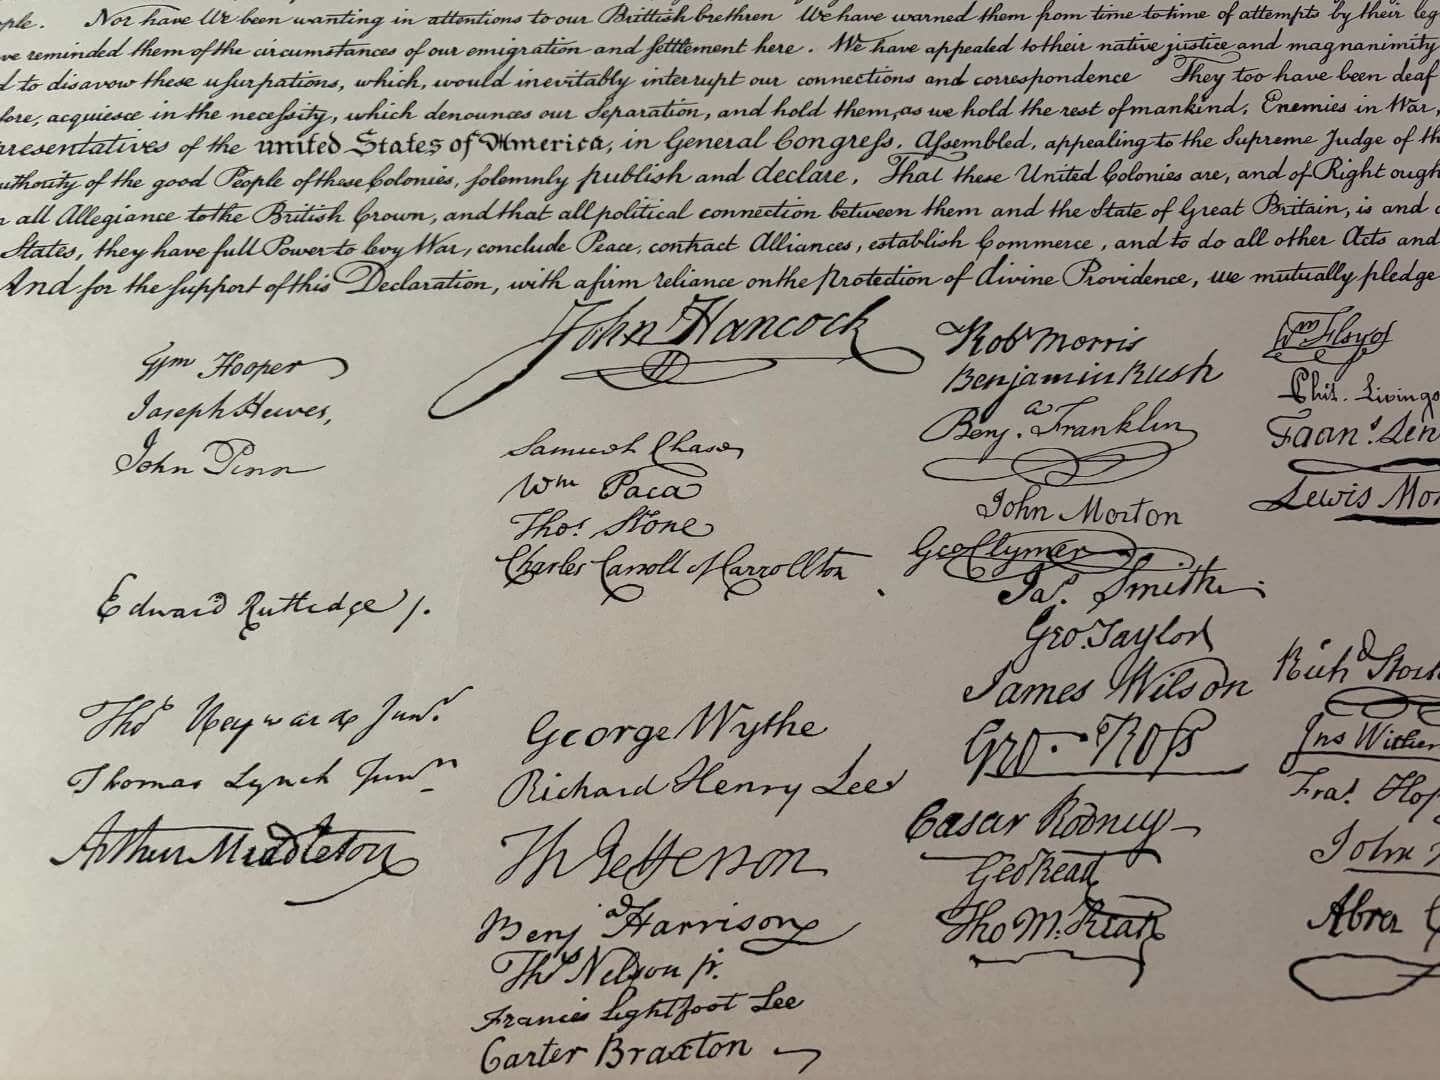 ple. Nor have We been wanting in attentions to our Brittish brethren We have warned them from time to time of attempts by their leg
ve reminded them of the circumstances of our emigration and settlement here. We have appealed to their native justice and magnanimity
d to disavow these usurpations, which, would inevitably interrupt our connections and correspondence They too have been deaf
fore, acquiesce in the necessity, which denounces our Separation, and hold them, as we hold the rest of mankind, Enemies in War,
resentatives of the united States of America, in General Congress, Assembled, appealing to the Supreme Judge of th
uthority of the good People of these Colonies, solemnly publish and declare, That these United Colonies are, and of Right ough
m all Allegiance to the British Crown, and that all political connection between them and the State of Great Britain, is and
States, they have full Power to levy War, conclude Peace, contract Alliances, establish Commerce, and to do all other Acts and
And for the support of this Declaration, with a firm reliance on the protection of divine Providence, we mutually pledge
Wm Hooper
Joseph Hewes,
John Penn
Edward Rutledge /.
Thos Heyward Junr.
Thomas Lynch Junr
Arthur Middleton
John Hancock
Samuel Chase
Wm Paca
Thos Stone
Charles Carroll of Carrollton
George Wythe
Richard Henry Lee
Th Jefferson
Benja Harrison
Thos Nelson jr.
Francis Lightfoot Lee
Carter Braxton
Robt Morris
Benjamin Rush
Benja. Franklin
John Morton
Geo Clymer
Jas. Smith
Geo. Taylor
James Wilson
Geo. Ross
Caesar Rodney
Geo Read
Tho M:Kean
Wm Floyd
Phil. Livings
Frans. Lew
Lewis Mor
Richd Stock
Jno Wither
Fras. Hop
John
Abra